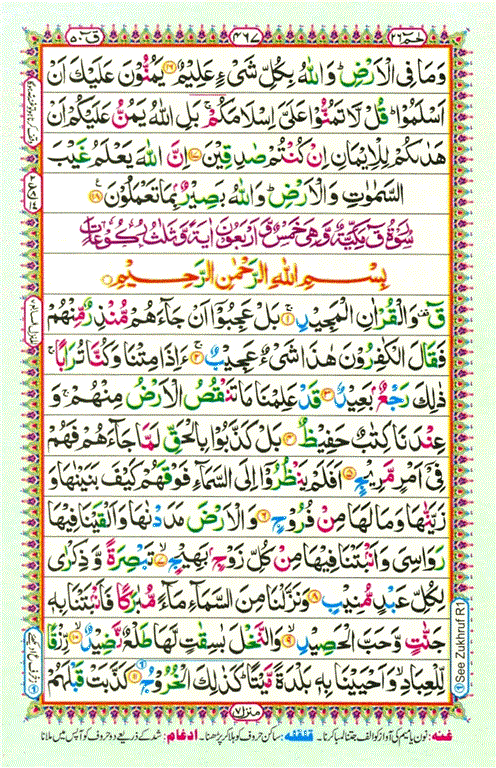 حٰمٓ ٢٦ ٤٦٧ قٓ ٥٠
وَمَا فِی الْاَرْضِ ؕ وَاللّٰهُ بِکُلِّ شَیْءٍ عَلِیْمٌ ﴿۱۶﴾ یَمُنُّوْنَ عَلَیْکَ اَنْ
اَسْلَمُوْا ؕ قُلْ لَّا تَمُنُّوْا عَلَیَّ اِسْلَامَکُمْ ۚ بَلِ اللّٰهُ یَمُنُّ عَلَیْکُمْ اَنْ
هَدٰىکُمْ لِلْاِیْمَانِ اِنْ کُنْتُمْ صٰدِقِیْنَ ﴿۱۷﴾ اِنَّ اللّٰهَ یَعْلَمُ غَیْبَ
السَّمٰوٰتِ وَالْاَرْضِ ؕ وَاللّٰهُ بَصِیْرٌۢ بِمَا تَعْمَلُوْنَ ﴿۱۸﴾
سُوْرَةُ قٓ مَکِّیَّةٌ وَّهِیَ خَمْسٌ وَّاَرْبَعُوْنَ اٰیَةً وَّثَلٰثُ رُکُوْعَاتٍ
بِسْمِ اللّٰهِ الرَّحْمٰنِ الرَّحِیْمِ
قٓ ۟ۚ وَالْقُرْاٰنِ الْمَجِیْدِ ﴿۱﴾ بَلْ عَجِبُوْۤا اَنْ جَآءَهُمْ مُّنْذِرٌ مِّنْهُمْ
فَقَالَ الْکٰفِرُوْنَ هٰذَا شَیْءٌ عَجِیْبٌ ﴿۲﴾ ءَاِذَا مِتْنَا وَکُنَّا تُرَابًا ۚ
ذٰلِکَ رَجْعٌۢ بَعِیْدٌ ﴿۳﴾ قَدْ عَلِمْنَا مَا تَنْقُصُ الْاَرْضُ مِنْهُمْ ۚ وَ
عِنْدَنَا کِتٰبٌ حَفِیْظٌ ﴿۴﴾ بَلْ کَذَّبُوْا بِالْحَقِّ لَمَّا جَآءَهُمْ فَهُمْ
فِیْۤ اَمْرٍ مَّرِیْجٍ ﴿۵﴾ اَفَلَمْ یَنْظُرُوْۤا اِلَی السَّمَآءِ فَوْقَهُمْ کَیْفَ بَنَیْنٰهَا وَ
زَیَّنّٰهَا وَمَا لَهَا مِنْ فُرُوْجٍ ﴿۶﴾ وَالْاَرْضَ مَدَدْنٰهَا وَاَلْقَیْنَا فِیْهَا
رَوَاسِیَ وَاَنْۢبَتْنَا فِیْهَا مِنْ کُلِّ زَوْجٍۭ بَهِیْجٍ ﴿۷﴾ تَبْصِرَةً وَّذِکْرٰی
لِکُلِّ عَبْدٍ مُّنِیْبٍ ﴿۸﴾ وَنَزَّلْنَا مِنَ السَّمَآءِ مَآءً مُّبٰرَکًا فَاَنْۢبَتْنَا بِهٖ
جَنّٰتٍ وَّحَبَّ الْحَصِیْدِ ﴿۹﴾ وَالنَّخْلَ بٰسِقٰتٍ لَّهَا طَلْعٌ نَّضِیْدٌ ﴿۱۰﴾ رِّزْقًا
لِّلْعِبَادِ ۙ وَاَحْیَیْنَا بِهٖ بَلْدَةً مَّیْتًا ؕ کَذٰلِکَ الْخُرُوْجُ ﴿۱۱﴾ کَذَّبَتْ قَبْلَهُمْ
See Zukhruf R1
منزل ٧
غنه: نون یا میم کی آواز کو الف جتنا لمبا کرنا۔ قلقله: ساکن حروف کو ہلا کر پڑھنا۔ ادغام: شد کے ذریعے دو حروف کو آپس میں ملانا